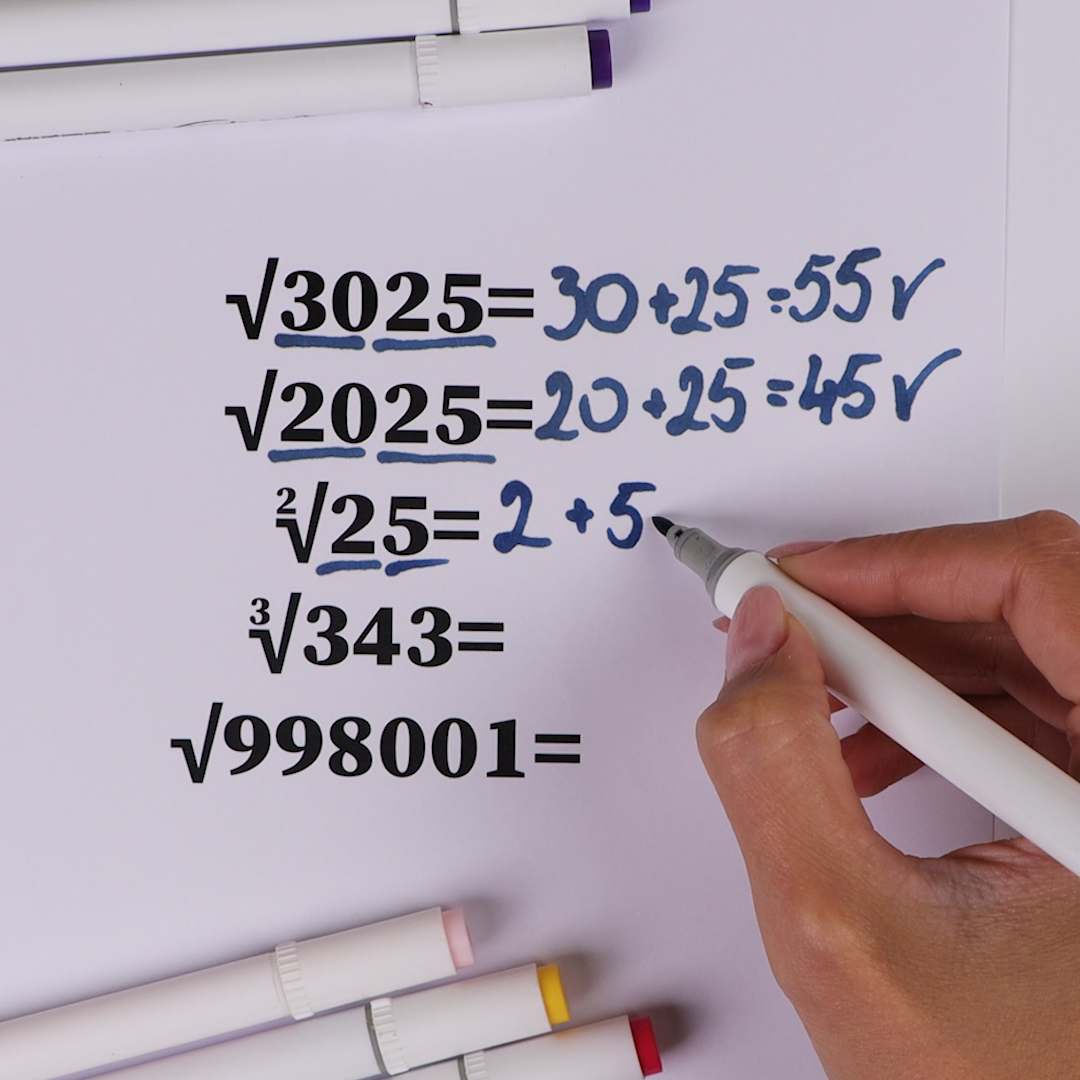 √3025=30+25=55✓
√2025=20+25=45✓
²√25=2+5
³√343=
√998001=